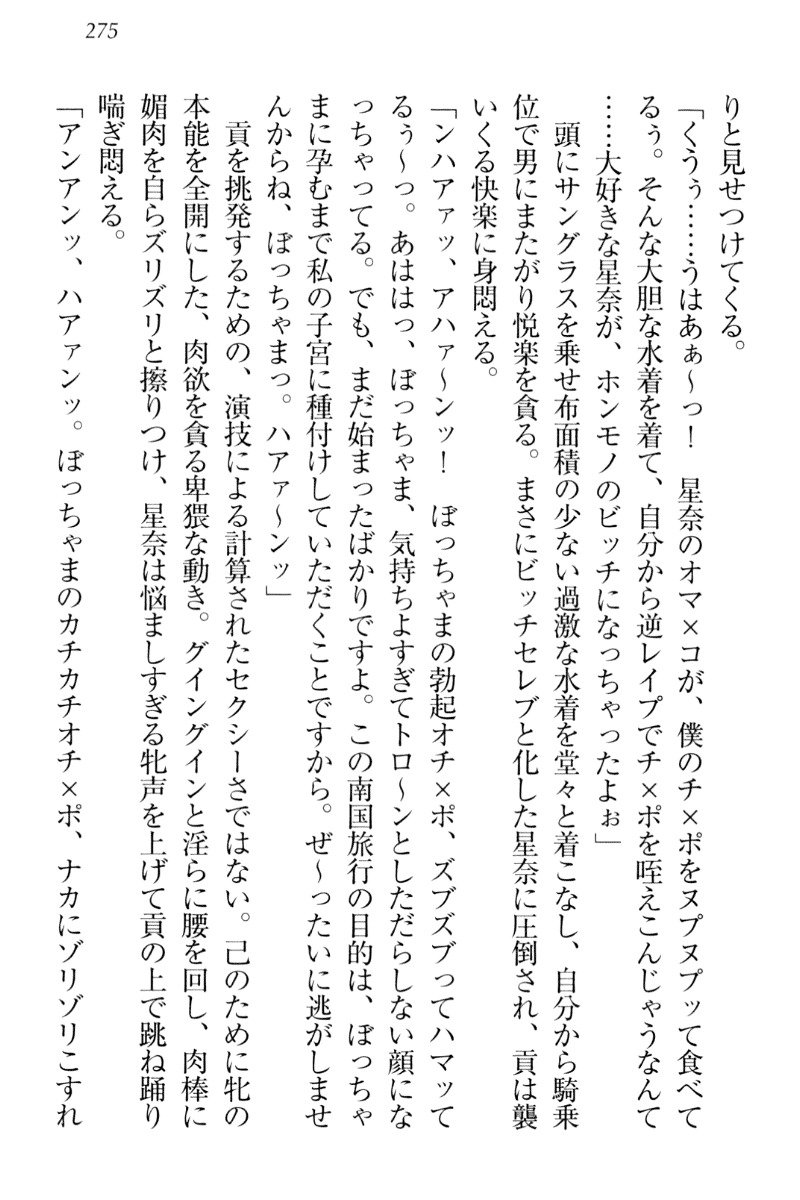 275
りと見せつけてくる。
「くうぅ……うはあぁ〜っ！　星奈のオマ×コが、僕のチ×ポをヌプヌプッて食べて
るぅ。そんな大胆な水着を着て、自分から逆レイプでチ×ポを咥えこんじゃうなんて
……大好きな星奈が、ホンモノのビッチになっちゃったよぉ」
　頭にサングラスを乗せ布面積の少ない過激な水着を堂々と着こなし、自分から騎乗
位で男にまたがり悦楽を貪る。まさにビッチセレブと化した星奈に圧倒され、貢は襲
いくる快楽に身悶える。
「ンハアァッ、アハァ〜ンッ！　ぼっちゃまの勃起オチ×ポ、ズブズブってハマッて
るぅ〜っ。あははっ、ぼっちゃま、気持ちよすぎてトロ〜ンとしただらしない顔にな
っちゃってる。でも、まだ始まったばかりですよ。この南国旅行の目的は、ぼっちゃ
まに孕むまで私の子宮に種付けしていただくことですから。ぜ〜ったいに逃がしませ
んからね、ぼっちゃまっ。ハアァ〜ンッ」
　貢を挑発するための、演技による計算されたセクシーさではない。己のために牝の
本能を全開にした、肉欲を貪る卑猥な動き。グイングインと淫らに腰を回し、肉棒に
媚肉を自らズリズリと擦りつけ、星奈は悩ましすぎる牝声を上げて貢の上で跳ね踊り
喘ぎ悶える。
「アンアンッ、ハアァンッ。ぼっちゃまのカチカチオチ×ポ、ナカにゾリゾリこすれ